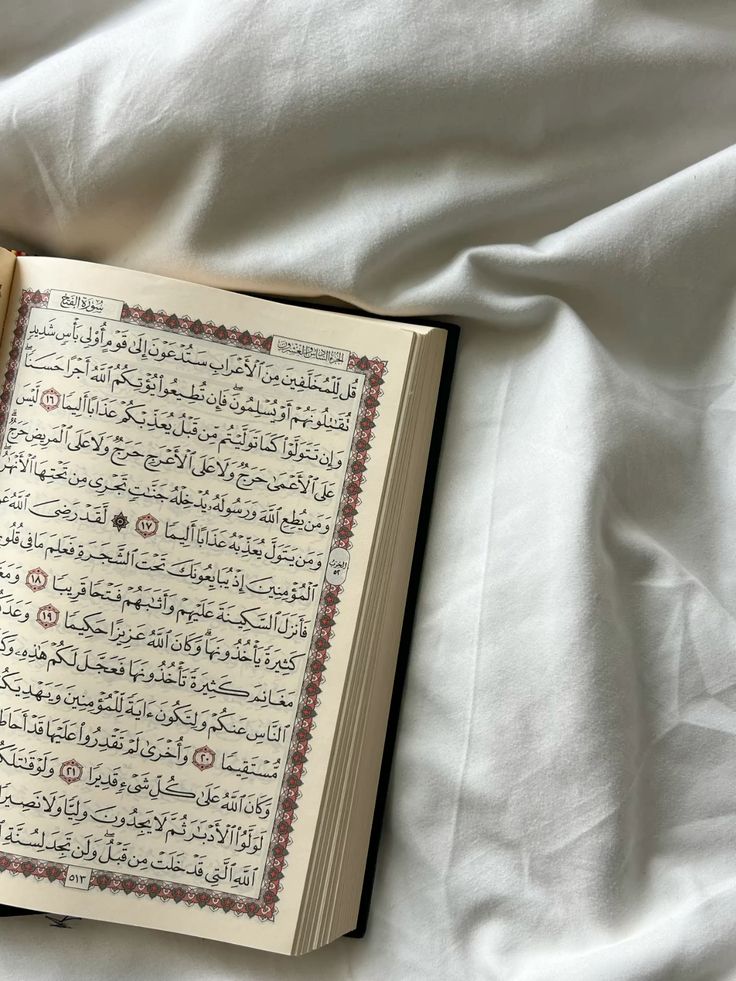 سُورَةُ الفَتْحِ
الجُزْءُ السَّادِسُ وَالعِشْرُونَ
قُل لِّلْمُخَلَّفِينَ مِنَ ٱلْأَعْرَابِ سَتُدْعَوْنَ إِلَىٰ قَوْمٍ أُو۟لِى بَأْسٍ شَدِيدٍ
تُقَـٰتِلُونَهُمْ أَوْ يُسْلِمُونَ ۖ فَإِن تُطِيعُوا۟ يُؤْتِكُمُ ٱللَّهُ أَجْرًا حَسَنًا ۖ
وَإِن تَتَوَلَّوْا۟ كَمَا تَوَلَّيْتُم مِّن قَبْلُ يُعَذِّبْكُمْ عَذَابًا أَلِيمًا ١٦ لَّيْسَ
عَلَى ٱلْأَعْمَىٰ حَرَجٌ وَلَا عَلَى ٱلْأَعْرَجِ حَرَجٌ وَلَا عَلَى ٱلْمَرِيضِ حَرَجٌ ۗ
وَمَن يُطِعِ ٱللَّهَ وَرَسُولَهُۥ يُدْخِلْهُ جَنَّـٰتٍ تَجْرِى مِن تَحْتِهَا ٱلْأَنْهَـٰرُ ۖ
وَمَن يَتَوَلَّ يُعَذِّبْهُ عَذَابًا أَلِيمًا ١٧ ۞ لَّقَدْ رَضِىَ ٱللَّهُ
ٱلْمُؤْمِنِينَ إِذْ يُبَايِعُونَكَ تَحْتَ ٱلشَّجَرَةِ فَعَلِمَ مَا فِى
فَأَنزَلَ ٱلسَّكِينَةَ عَلَيْهِمْ وَأَثَـٰبَهُمْ فَتْحًا قَرِيبًا ١٨
كَثِيرَةً يَأْخُذُونَهَا ۗ وَكَانَ ٱللَّهُ عَزِيزًا حَكِيمًا ١٩
مَغَانِمَ كَثِيرَةً تَأْخُذُونَهَا فَعَجَّلَ لَكُمْ هَـٰذِهِۦ
ٱلنَّاسِ عَنكُمْ وَلِتَكُونَ ءَايَةً لِّلْمُؤْمِنِينَ
مُّسْتَقِيمًا ٢٠ وَأُخْرَىٰ لَمْ تَقْدِرُوا۟ عَلَيْهَا قَدْ
وَكَانَ ٱللَّهُ عَلَىٰ كُلِّ شَىْءٍ قَدِيرًا ٢١
لَوَلَّوُا۟ ٱلْأَدْبَـٰرَ ثُمَّ لَا يَجِدُونَ وَلِيًّا وَلَا نَصِيرًا
ٱللَّهِ ٱلَّتِى قَدْ خَلَتْ مِن قَبْلُ ۖ وَلَن تَجِدَ لِسُنَّةِ
٥١٣